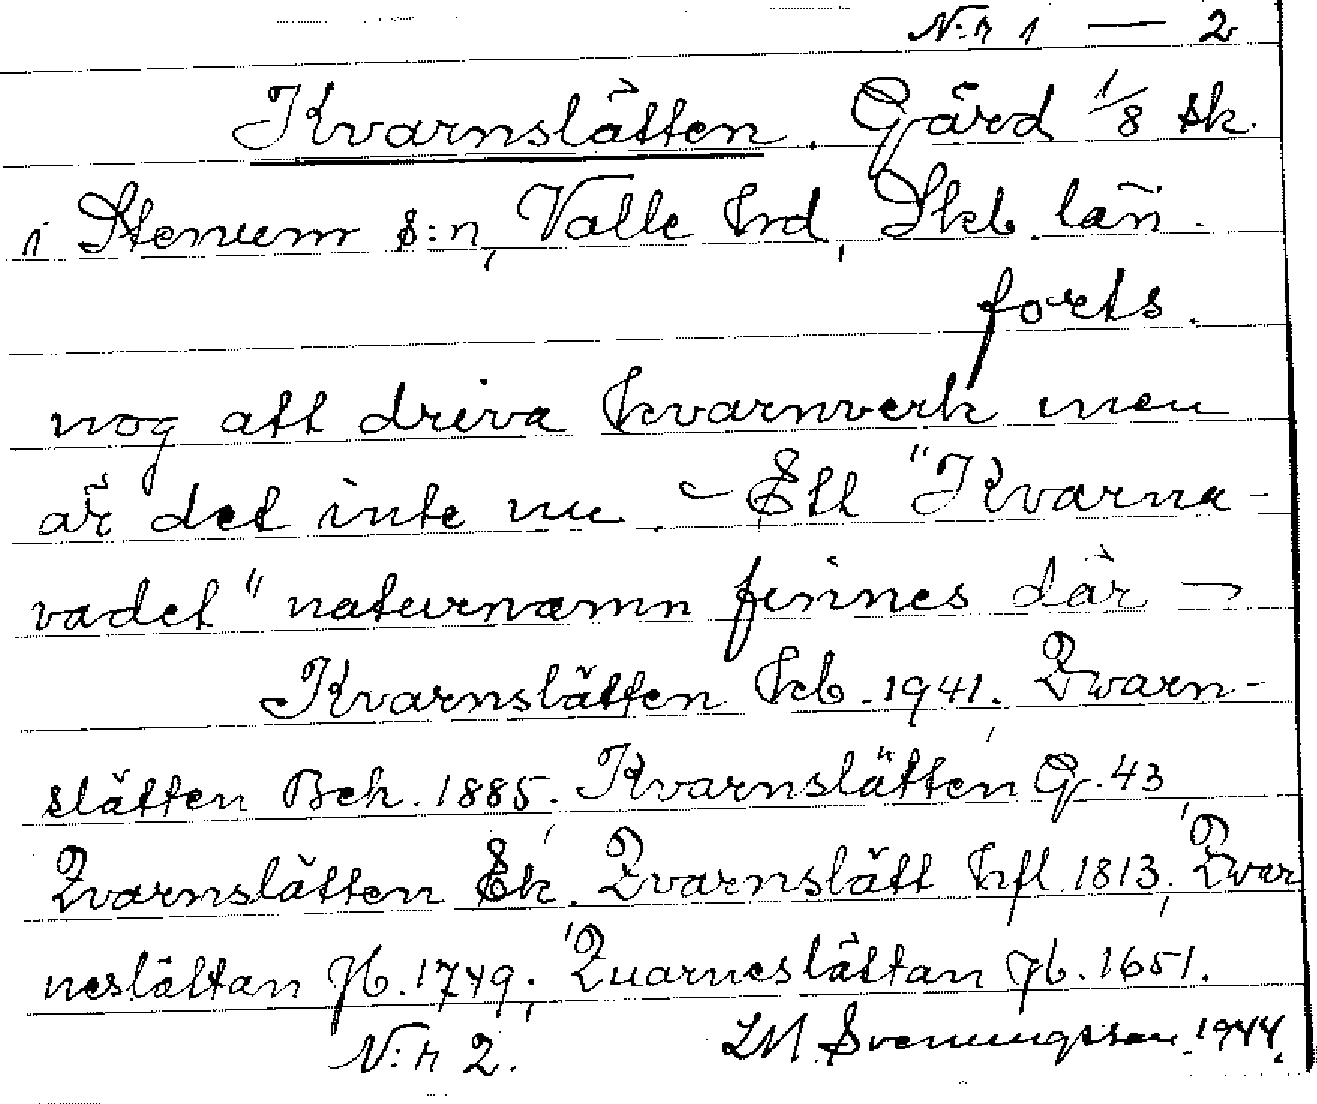 N:r 1 — 2
Kvarnslätten. Gård 1/8 sk.
i Stenum s:n, Valle hrd, Skb. län.
forts.
nog att driva kvarnverk men
är det inte nu. – Ett "Kvarna-
vadet" naturnamn finnes där –
Kvarnslätten kb. 1941; Qvarn-
slätten Bek. 1885; Kvarnslätten G. 43;
Qvarnslätten Ek. Qvarnslätt hfl 1813; Qvar
neslättan Jb. 1749; Quarneslättan Jb. 1651.
N:r 2. LM. Svenungsson 1944.